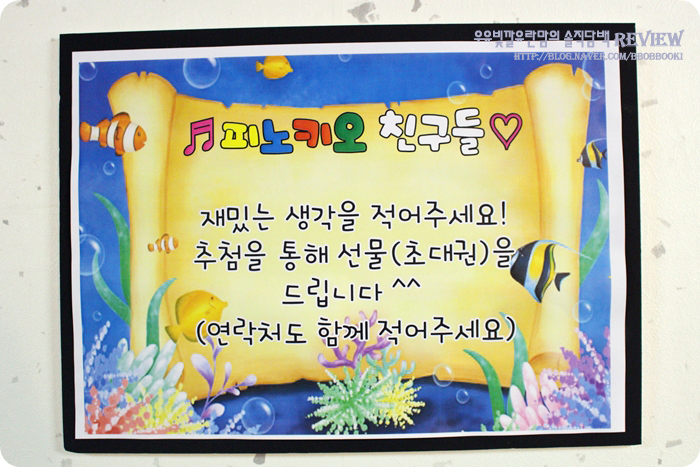 우유빛깔유란맘의 솔직담백 REVIEW
HTTP://BLOG.NAVER.COM/BBOBBOOKI
피노키오 친구들♡
재밌는 생각을 적어주세요!
추첨을 통해 선물(초대권)을
드립니다 ^^
(연락처도 함께 적어주세요)